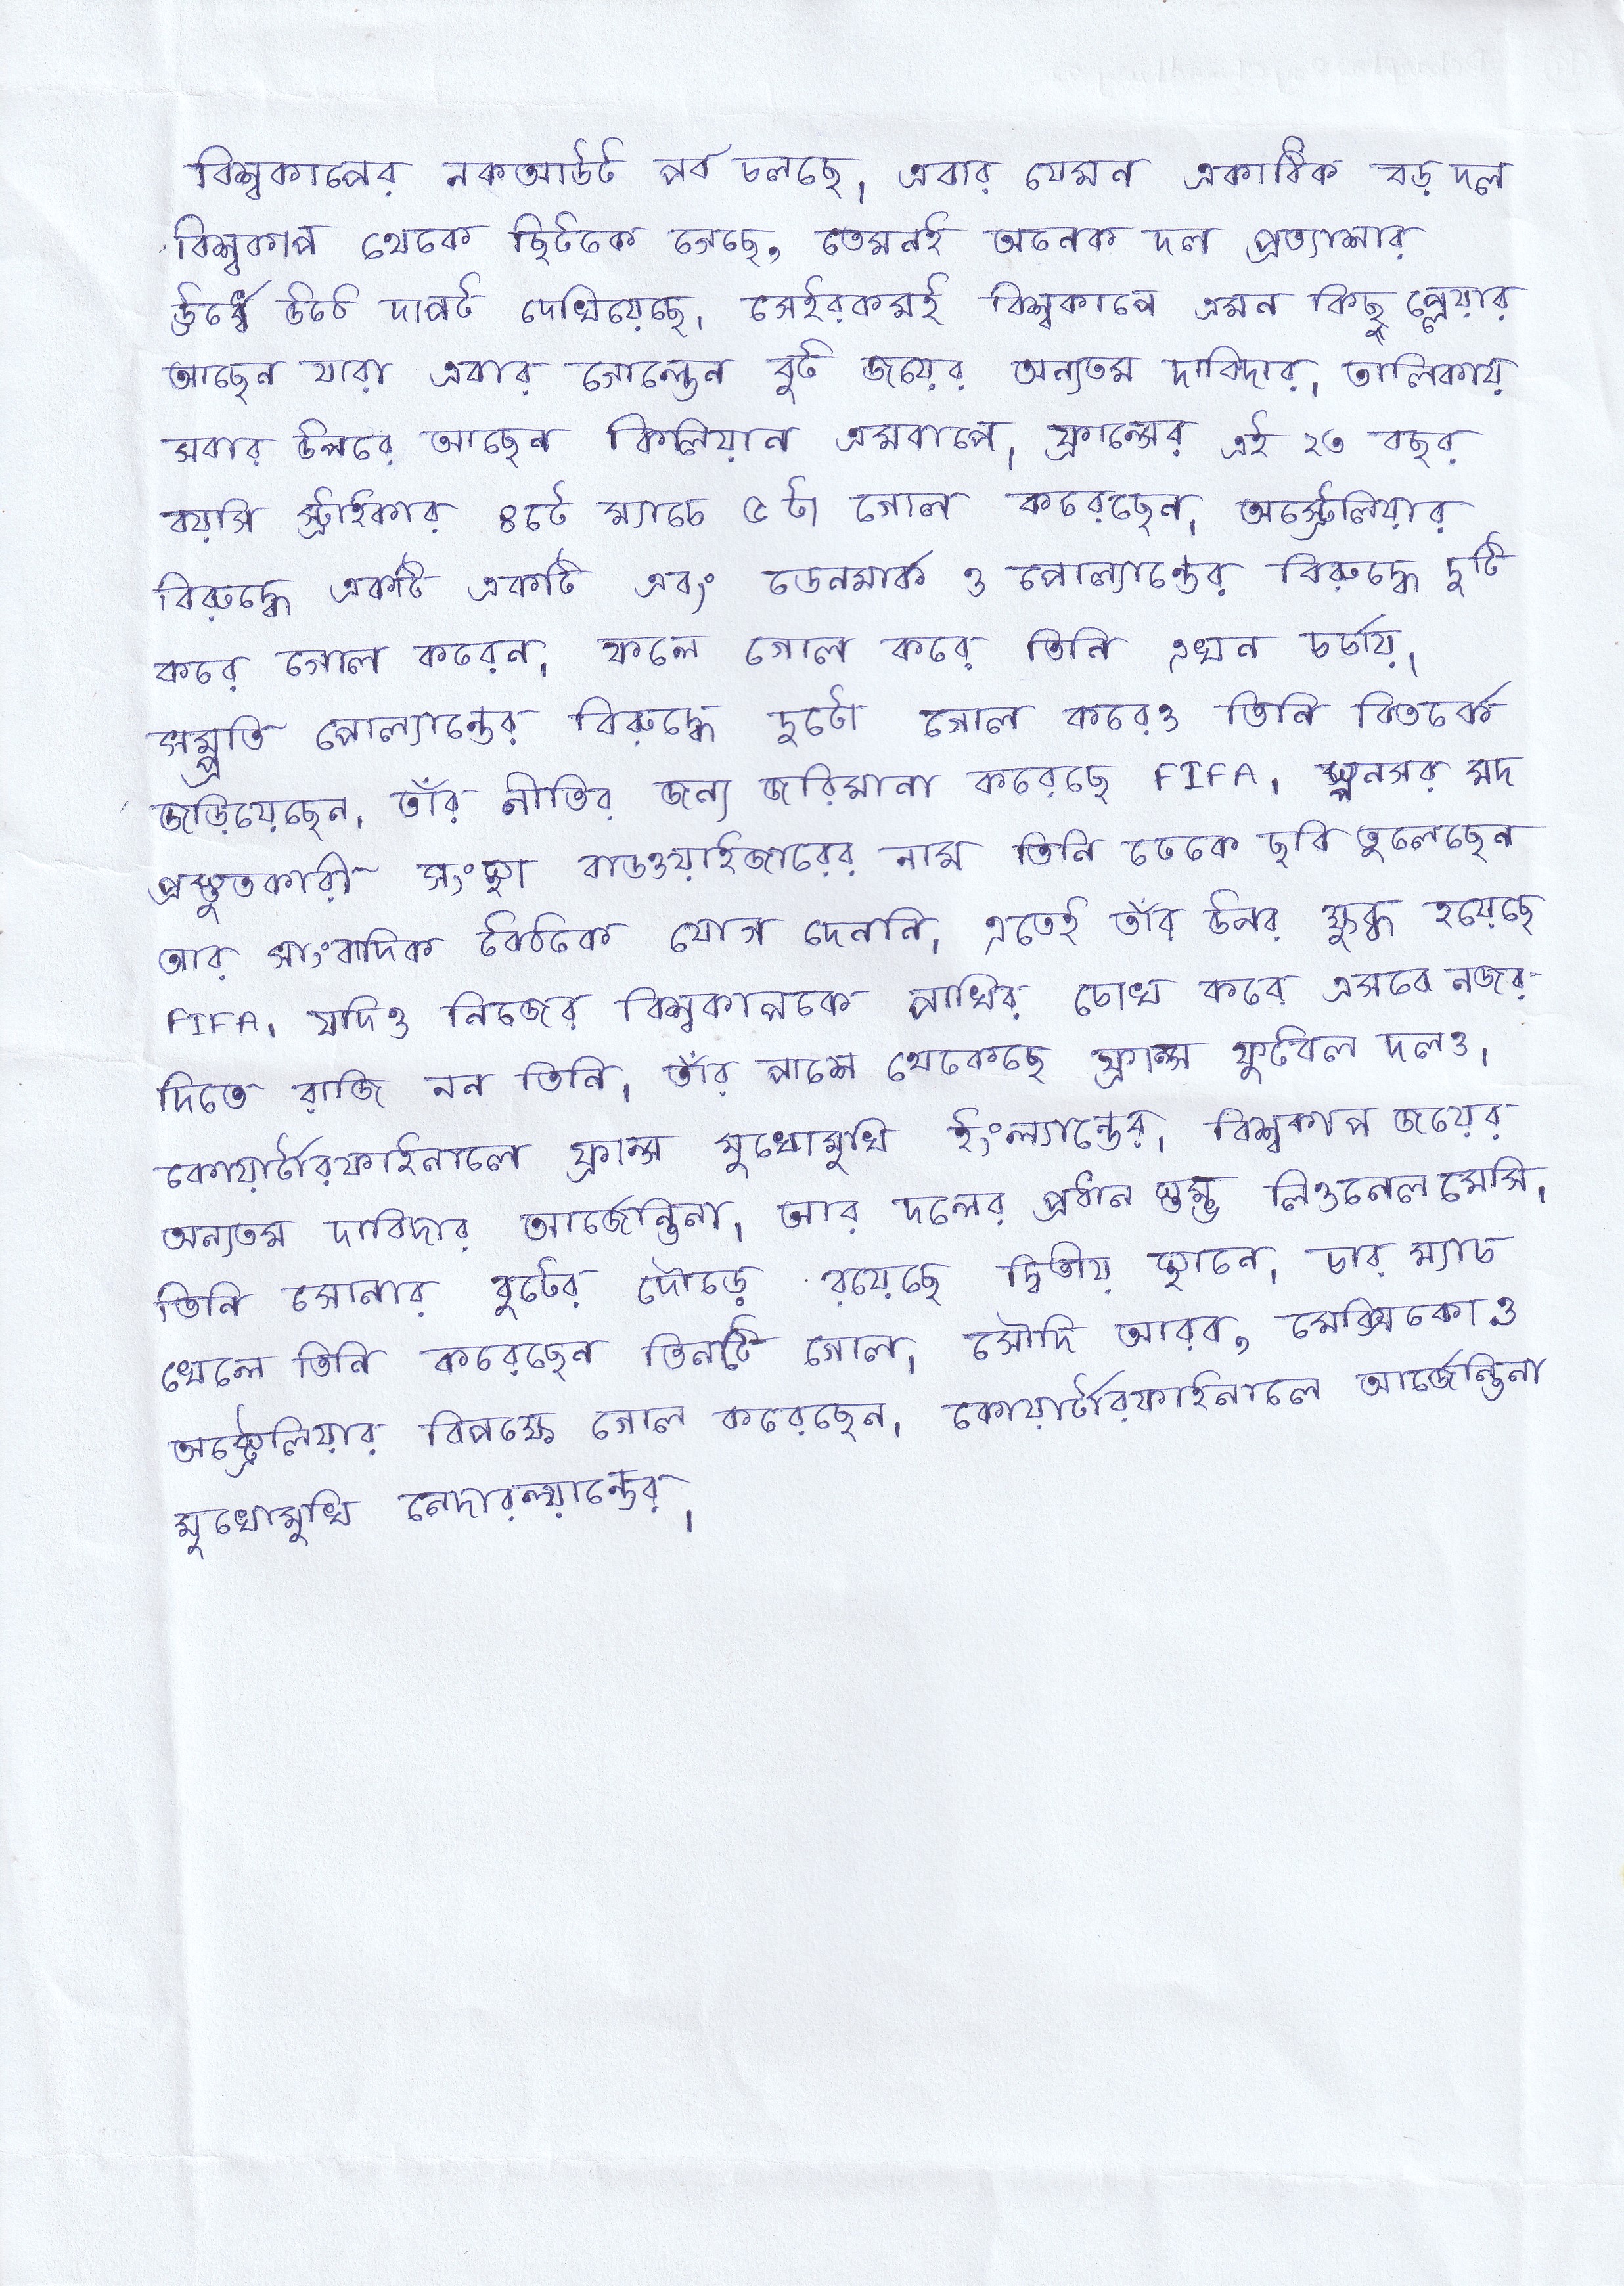 বিশ্বকাপের নকআউট পর্ব চলছে। এবার যেমন একাধিক বড় দল
বিশ্বকাপ থেকে ছিটকে গেছে, তেমনই অনেক দল প্রত্যাশার
ঊর্ধ্বে উঠে দাপট দেখিয়েছে। সেইরকমই বিশ্বকাপে এমন কিছু প্লেয়ার
আছেন যারা এবার গোল্ডেন বুট জয়ের অন্যতম দাবিদার। তালিকায়
সবার উপরে আছেন কিলিয়ান এমবাপে। ফ্রান্সের এই ২৩ বছর
বয়সি স্ট্রাইকার ৪টে ম্যাচে ৫ টা গোল করেছেন। অস্ট্রেলিয়ার
বিরুদ্ধে একটি একটি এবং ডেনমার্ক ও পোল্যান্ডের বিরুদ্ধে দুটি
করে গোল করেন। ফলে গোল করে তিনি এখন চর্চায়।
সম্প্রতি পোল্যান্ডের বিরুদ্ধে দুটো গোল করেও তিনি বিতর্কে
জড়িয়েছেন। তাঁর নীতির জন্য জরিমানা করেছে FIFA। স্পনসর মদ
প্রস্তুতকারী সংস্থা বাডওয়াইজারের নাম তিনি ঢেকে ছবি তুলেছেন
আর সাংবাদিক বৈঠকে যোগ দেননি। এতেই তাঁর উপর ক্ষুব্ধ হয়েছে
FIFA। যদিও নিজের বিশ্বকাপকে পাখির চোখ করে এসবে নজর
দিতে রাজি নন তিনি। তাঁর পাশে থেকেছে ফ্রান্স ফুটবল দলও।
কোয়ার্টারফাইনালে ফ্রান্স মুখোমুখি ইংল্যান্ডের। বিশ্বকাপ জয়ের
অন্যতম দাবিদার আর্জেন্তিনা। আর দলের প্রধান স্তম্ভ লিওনেল মেসি।
তিনি সোনার বুটের দৌড়ে রয়েছে দ্বিতীয় স্থানে। চার ম্যাচ
খেলে তিনি করেছেন তিনটি গোল। সৌদি আরব, মেক্সিকো ও
অস্ট্রেলিয়ার বিপক্ষে গোল করেছেন। কোয়ার্টারফাইনালে আর্জেন্তিনা
মুখোমুখি নেদারল্যান্ডের।